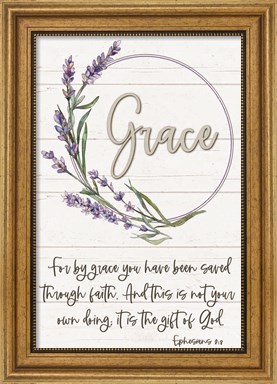 Grace
For by grace you have been saved
through faith. And this is not your
own doing, it is the gift of God
Ephesians 2:8